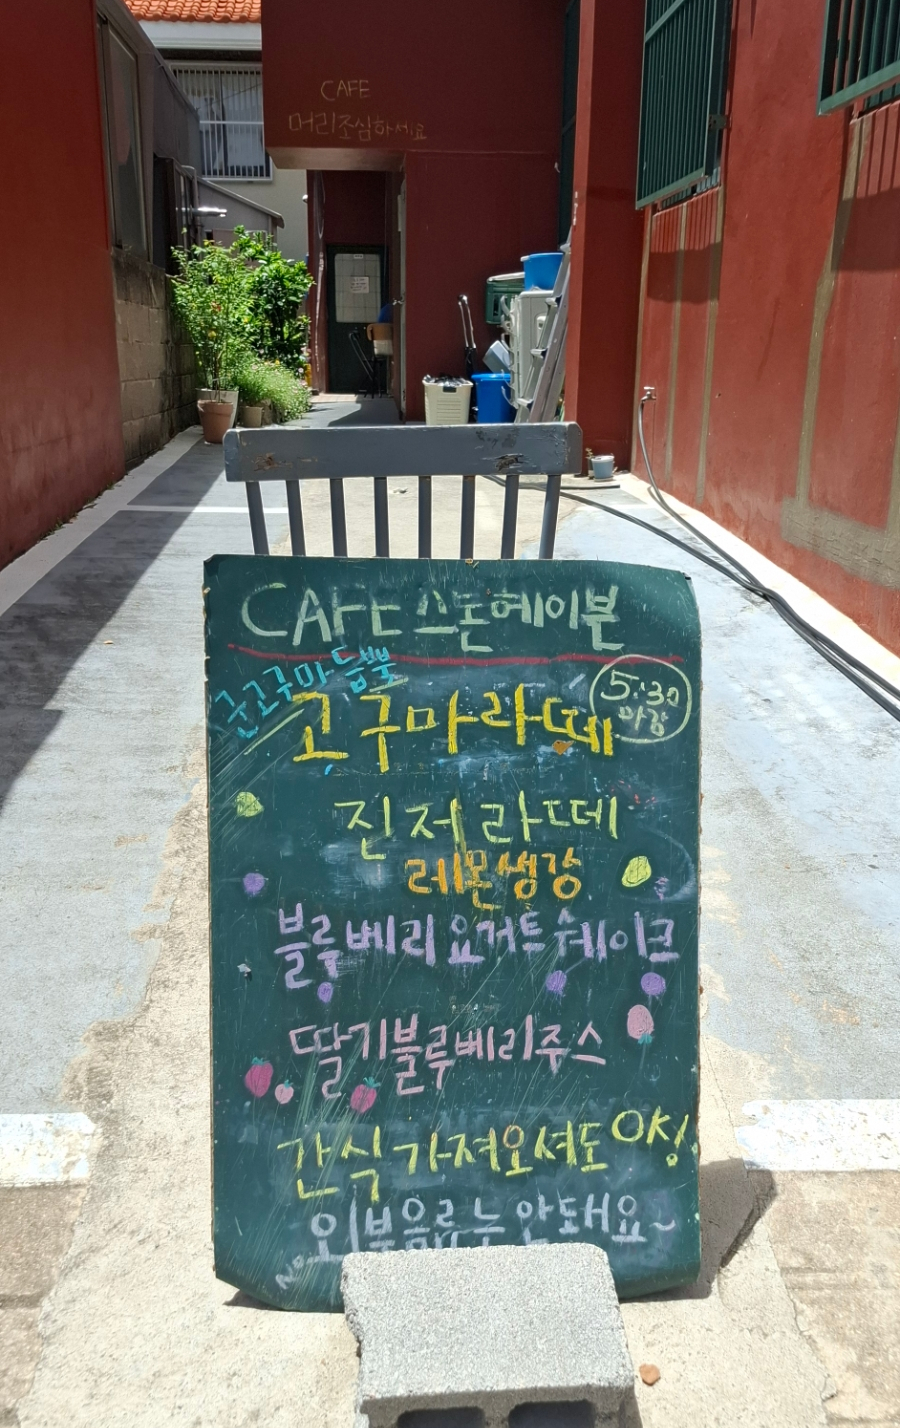 CAFE
머리조심하세요
CAFE 스톤헤이븐
군고구마 듬뿍
고구마라떼
5:30
마감
진저라떼
레몬생강
블루베리요거트쉐이크
딸기블루베리주스
간식가져오셔도 OK!
외부음료는 안돼요~
No.